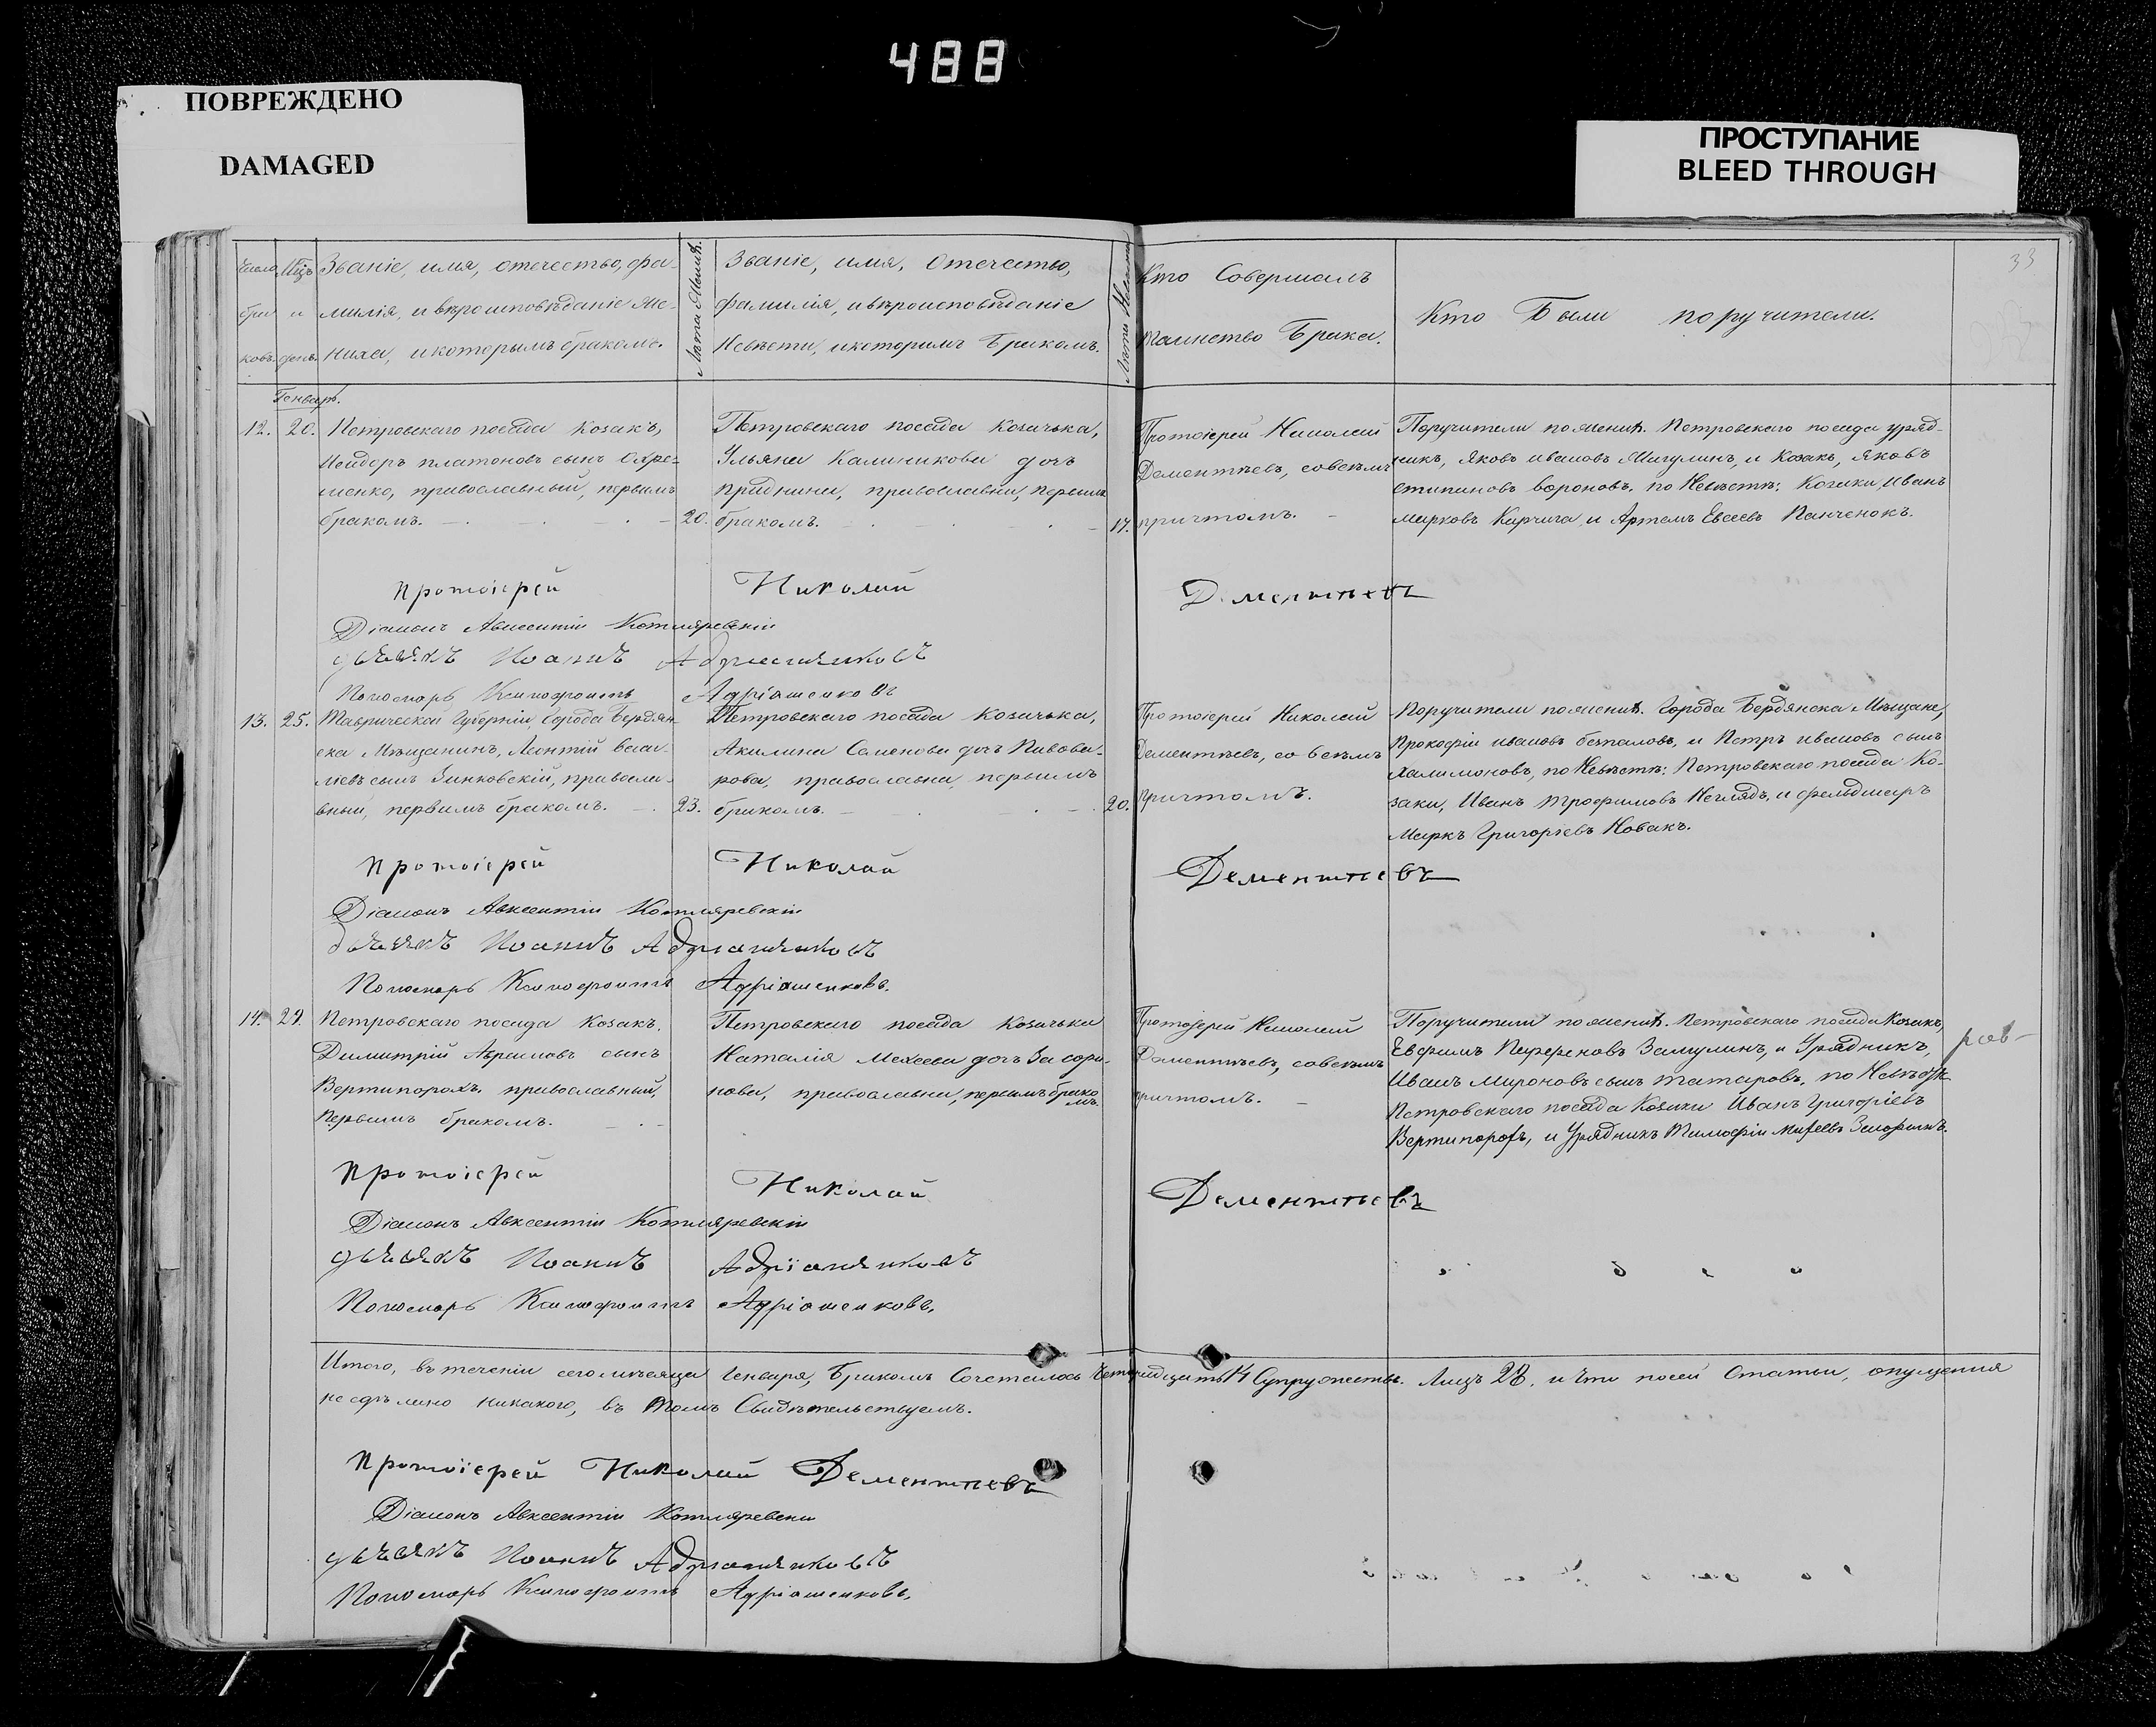 488
ПОВРЕЖДЕНО
DAMAGED
ПРОСТУПАНИЕ
BLEED THROUGH
33
Число бра ковъ.
Мцъ и день.
Званіе, имя, отечество, фа-
милія, и вѣроисповѣданіе Же-
ниха, и которымъ бракомъ.
Лѣта Жениха.
Званіе, имя, Отечество,
фамилія, и вѣроисповѣданіе
Невѣсты, и которымъ Бракомъ.
Лѣта Невѣсты
Кто Совершалъ
таинство Брака.
Кто Были поручители.
Генварь.
12. 20. Петровскаго посада Козакъ,
платоновъ сынъ Охре-
менко, православный, первымъ
бракомъ. 20.
Петровскаго посада Козачька,
Ульяна Калиникова дочь
православна, первымъ
бракомъ. 17.
Протоіерей Николай
Дементьевъ, совсѣмъ
причтомъ.
Поручители по женихѣ. Петровскаго посада уряд-
никъ, Яковъ ивановъ Мигулинъ, и Козакъ, Яковъ
стипановъ вороновъ. по Невѣстѣ: Козаки, Иванъ
марковъ Карчига и Артемъ Евсеевъ Панченокъ.
Протоіерей Николай Дементьевъ
Діаконъ Авксентій Котляревскій
дьячокъ Иоаннъ Адріашенковъ
Пономарь Ксинофонтъ Адріашенковъ
13. 25. Таврической Губерніи, Города Бердян-
ска Мѣщанинъ, Леонтій васи-
ліевъ сынъ Зинковскій, правосла-
вный, первымъ бракомъ. 23.
Петровскаго посада Козачька,
Акилина Семенова дочь Пивова-
рова, православна, первымъ
бракомъ. 20.
Протоіерей Николай
Дементьевъ, со всѣмъ
Причтомъ.
Поручители по женихѣ. Города Бердянска Мѣщане,
Прокофій ивановъ безпаловъ, и Петръ ивановъ сынъ
халимоновъ, по Невѣстѣ: Петровскаго посада Ко-
заки, Иванъ трофимовъ Неглядъ, и фельдшеръ
Маркъ Григоріевъ Новакъ.
Протоіерей Николай Дементьевъ
Діаконъ Авксентій Котляревскій
дьячокъ Иоаннъ Адріашенковъ
Пономарь Ксинофонтъ Адріашенковъ.
14. 27. Петровскаго посада Козакъ,
Димитрій Абрамовъ сынъ
Вертипорохъ. православный,
Первымъ бракомъ.
Петровскаго посада Козачька
Наталія Мохеева дочь Загори-
нова, православна, первымъ брако
мъ.
Протоіерей Николай
Дементьевъ, совсѣмъ
причтомъ.
Поручители по женихѣ. Петровскаго посада Козакъ,
Евфимъ Парфеновъ Замулинъ, и Урядникъ,
Иванъ Мироновъ сынъ татаровъ. по Невѣстѣ
Петровскаго посада Козаки Иванъ Григоріевъ
Вертипорохъ, и Урядникъ Тимофій
Протоіерей Николай Дементьевъ
Діаконъ Авксентій Котляревскій
дьячокъ Иоаннъ Адріашенковъ
Пономарь Ксинофонтъ Адріашенковъ.
Итого, въ теченіи сего мѣсяца Генваря, Бракомъ Сочеталось Четырнадцать 14 Супружествъ. Лицъ 28. и Что посей Статьи, опущенія
не сдѣлано никакого, въ томъ Свидѣтельствуемъ.
Протоіерей Николай Дементьевъ
Діаконъ Авксентій Котляревскій
дьячокъ Иоаннъ Адріашенковъ
Пономарь Ксинофонтъ Адріашенковъ.